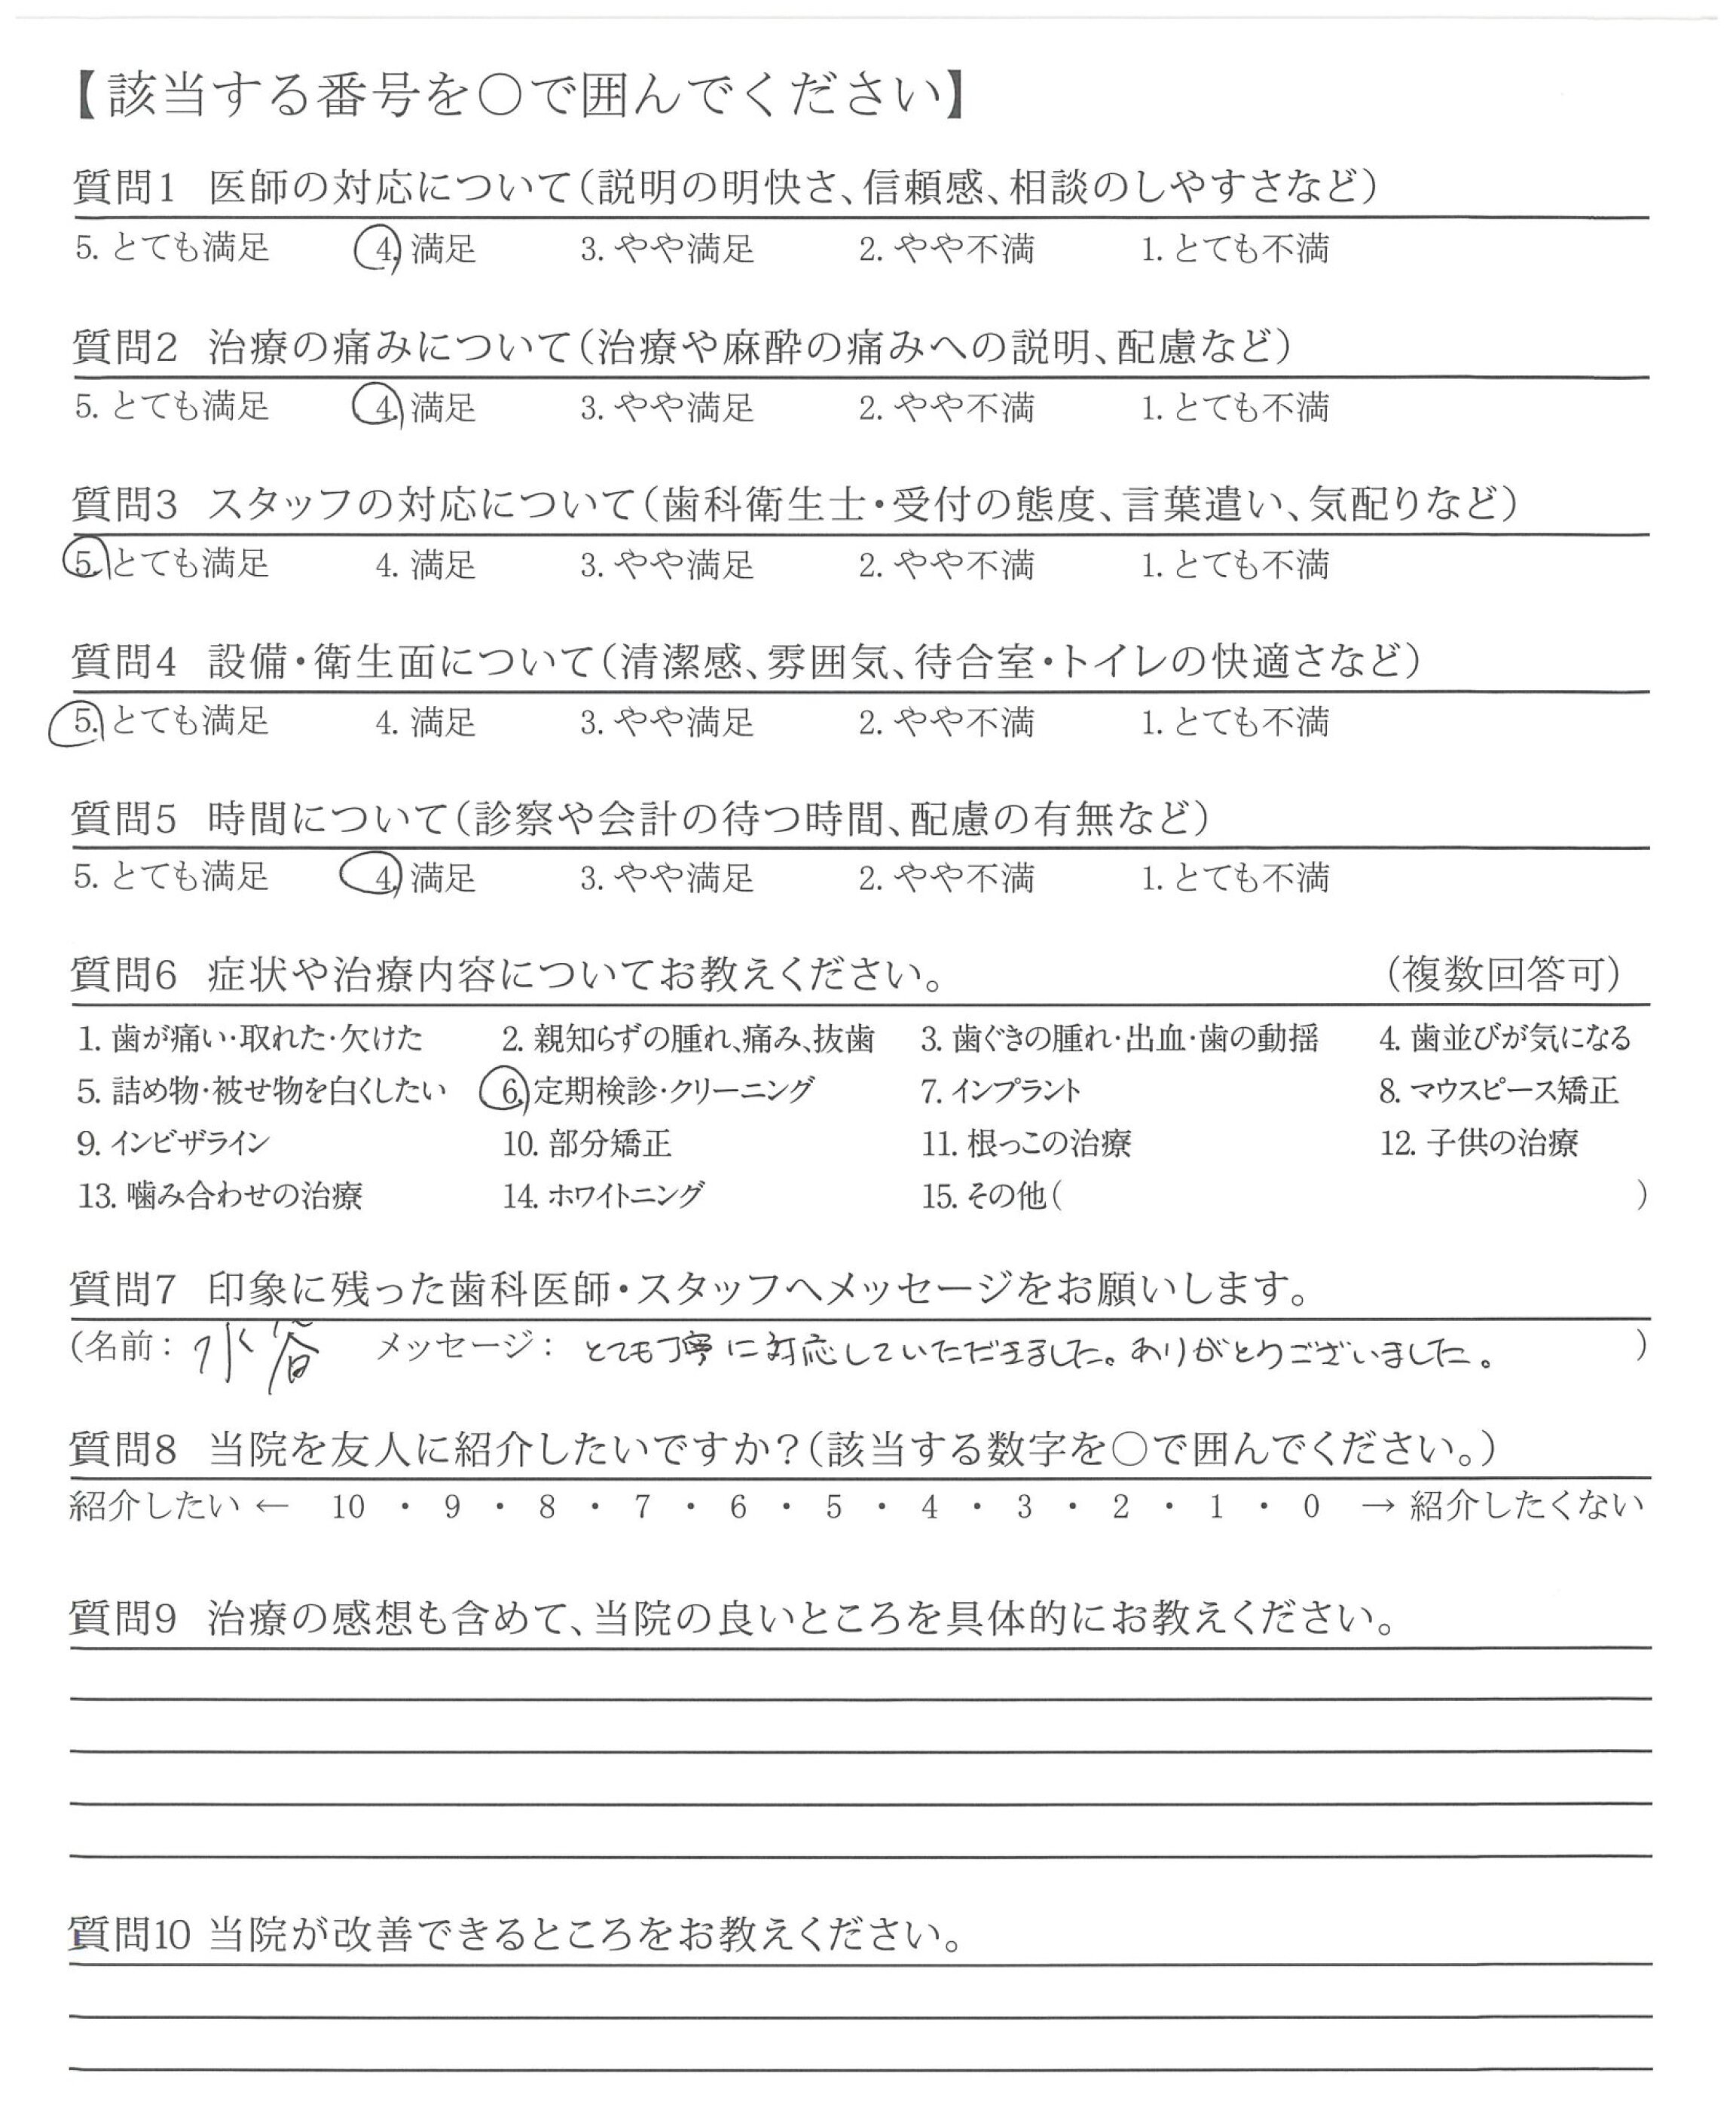 【該当する番号を○で囲んでください】
質問1 医師の対応について(説明の明快さ、信頼感、相談のしやすさなど)
5. とても満足 4. 満足 3. やや満足 2. やや不満 1. とても不満
質問2 治療の痛みについて(治療や麻酔の痛みへの説明、配慮など)
5. とても満足 4. 満足 3. やや満足 2. やや不満 1. とても不満
質問3 スタッフの対応について(歯科衛生士・受付の態度、言葉遣い、気配りなど)
5. とても満足 4. 満足 3. やや満足 2. やや不満 1. とても不満
質問4 設備・衛生面について(清潔感、雰囲気、待合室・トイレの快適さなど)
5. とても満足 4. 満足 3. やや満足 2. やや不満 1. とても不満
質問5 時間について(診察や会計の待つ時間、配慮の有無など)
5. とても満足 4. 満足 3. やや満足 2. やや不満 1. とても不満
質問6 症状や治療内容についてお教えください。 (複数回答可)
1. 歯が痛い・取れた・欠けた 2. 親知らずの腫れ、痛み、抜歯 3. 歯ぐきの腫れ・出血・歯の動揺 4. 歯並びが気になる
5. 詰め物・被せ物を白くしたい 6. 定期検診・クリーニング 7. インプラント 8. マウスピース矯正
9. インビザライン 10. 部分矯正 11. 根っこの治療 12. 子供の治療
13. 噛み合わせの治療 14. ホワイトニング 15. その他( )
質問7 印象に残った歯科医師・スタッフへメッセージをお願いします。
(名前: 水谷 メッセージ: とても丁寧に対応していただきました。ありがとうございました。 )
質問8 当院を友人に紹介したいですか?(該当する数字を○で囲んでください。)
紹介したい ← 10 ・ 9 ・ 8 ・ 7 ・ 6 ・ 5 ・ 4 ・ 3 ・ 2 ・ 1 ・ 0 → 紹介したくない
質問9 治療の感想も含めて、当院の良いところを具体的にお教えください。
質問10 当院が改善できるところをお教えください。